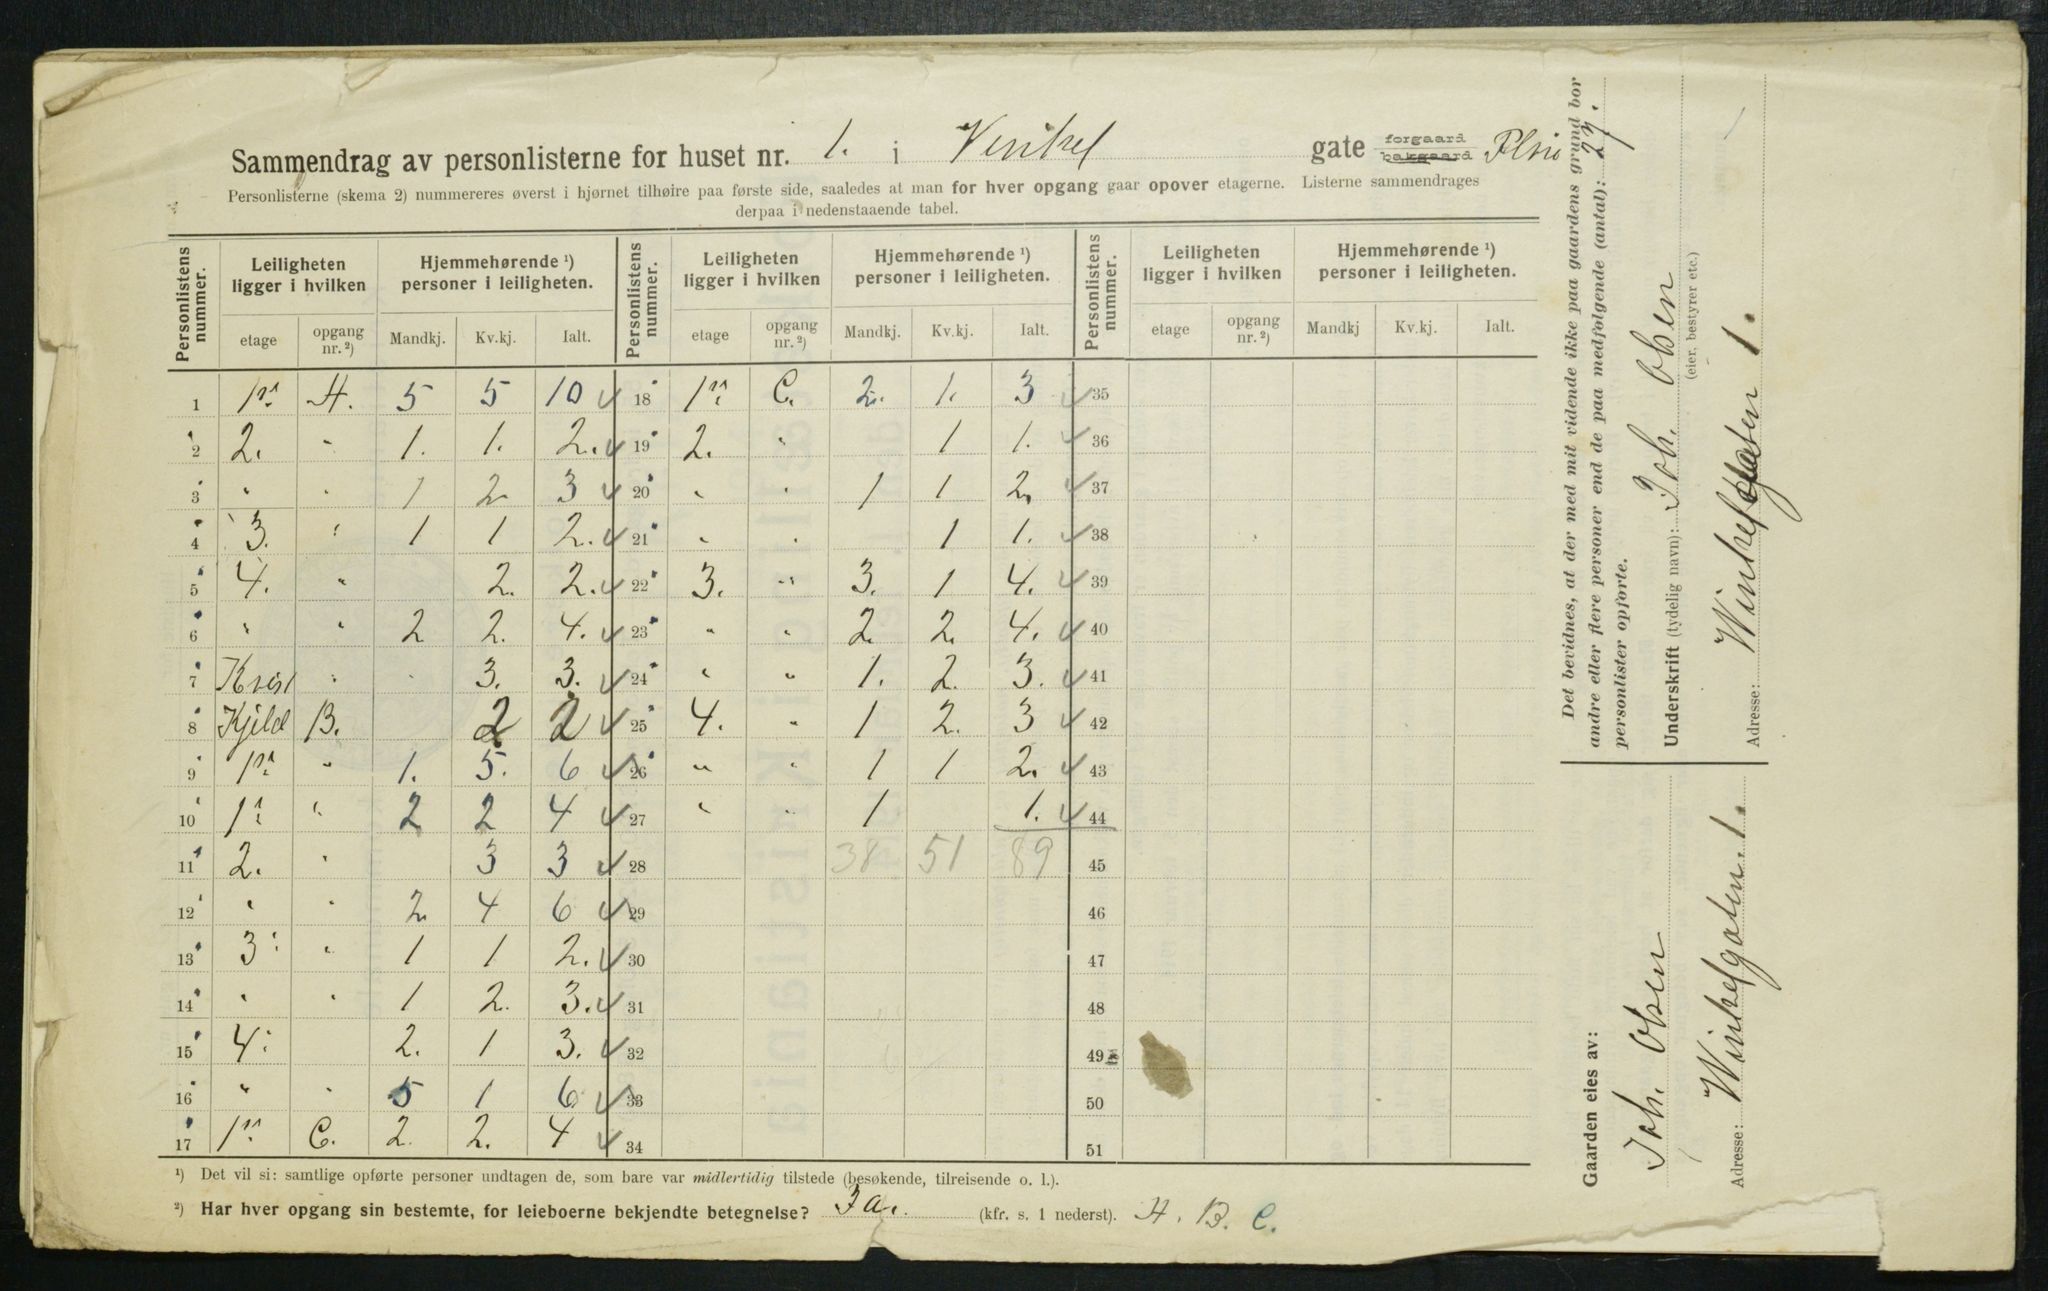 Sammendrag av personlisterne for huset nr. 1. i Vinkel gate forgaard bakgaard
Personlisterne (skema 2) nummereres øverst i hjørnet tilhøire paa første side, saaledes at man for hver opgang gaar opover etagerne. Listerne sammendrages
derpaa i nedenstaaende tabel.
Personlistens nummer. Leiligheten ligger i hvilken Hjemmehørende ¹) personer i leiligheten. Personlistens nummer. Leiligheten ligger i hvilken Hjemmehørende ¹) personer i leiligheten. Personlistens nummer. Leiligheten ligger i hvilken Hjemmehørende ¹) personer i leiligheten.
etage opgang nr. ²) Mandkj. Kv.kj. Ialt. etage opgang nr. ²) Mandkj. Kv.kj. Ialt. etage opgang nr. ²) Mandkj Kv.kj. Ialt.
1 1ste A. 5 5 10 18 1ste C. 2. 1. 3 35
2 2. " 1. 1. 2. 19 2. " 1 1. 36
3 " " 1 2 3 20 " " 1 1 2. 37
4 3. " 1 1 2. 21 " " 1 1. 38
5 4. " 2. 2. 22 3. " 3. 1 4. 39
6 " " 2 2. 4. 23 " " 2. 2. 4. 40
7 Kvist " 3. 3. 24 " " 1. 2. 3. 41
8 Kjeld B. 2 2 25 4. " 1 2. 3 42
9 1ste " 1. 5. 6 26 " " 1 1 2. 43
10 1ste " 2 2 4 27 " " 1 1. 44
11 2. " 3 3 28 38 51 89 45
12 " " 2. 4 6 29 46
13 3. " 1 1 2. 30 47
14 " " 1 2. 3. 31 48
15 4. 2. 1 3. 32 49
16 " " 5 1 6 33 50
17 1ste C. 2. 2. 4 34 51
¹) Det vil si: samtlige opførte personer undtagen de, som bare var midlertidig tilstede (besøkende, tilreisende o. l.).
²) Har hver opgang sin bestemte, for leieboerne bekjendte betegnelse? Ja. (kfr. s. 1 nederst). A. B. C.
Det bevidnes, at der med mit vidende ikke paa gaardens grund bor
andre eller flere personer end de paa medfølgende (antal): 27.
personlister opførte.
Underskrift (tydelig navn): Joh. Olsen
(eier, bestyrer etc.)
Adresse: Winkelgaten 1.
Gaarden eies av:
Joh. Olsen
Adresse: Winkelgaten. 1.